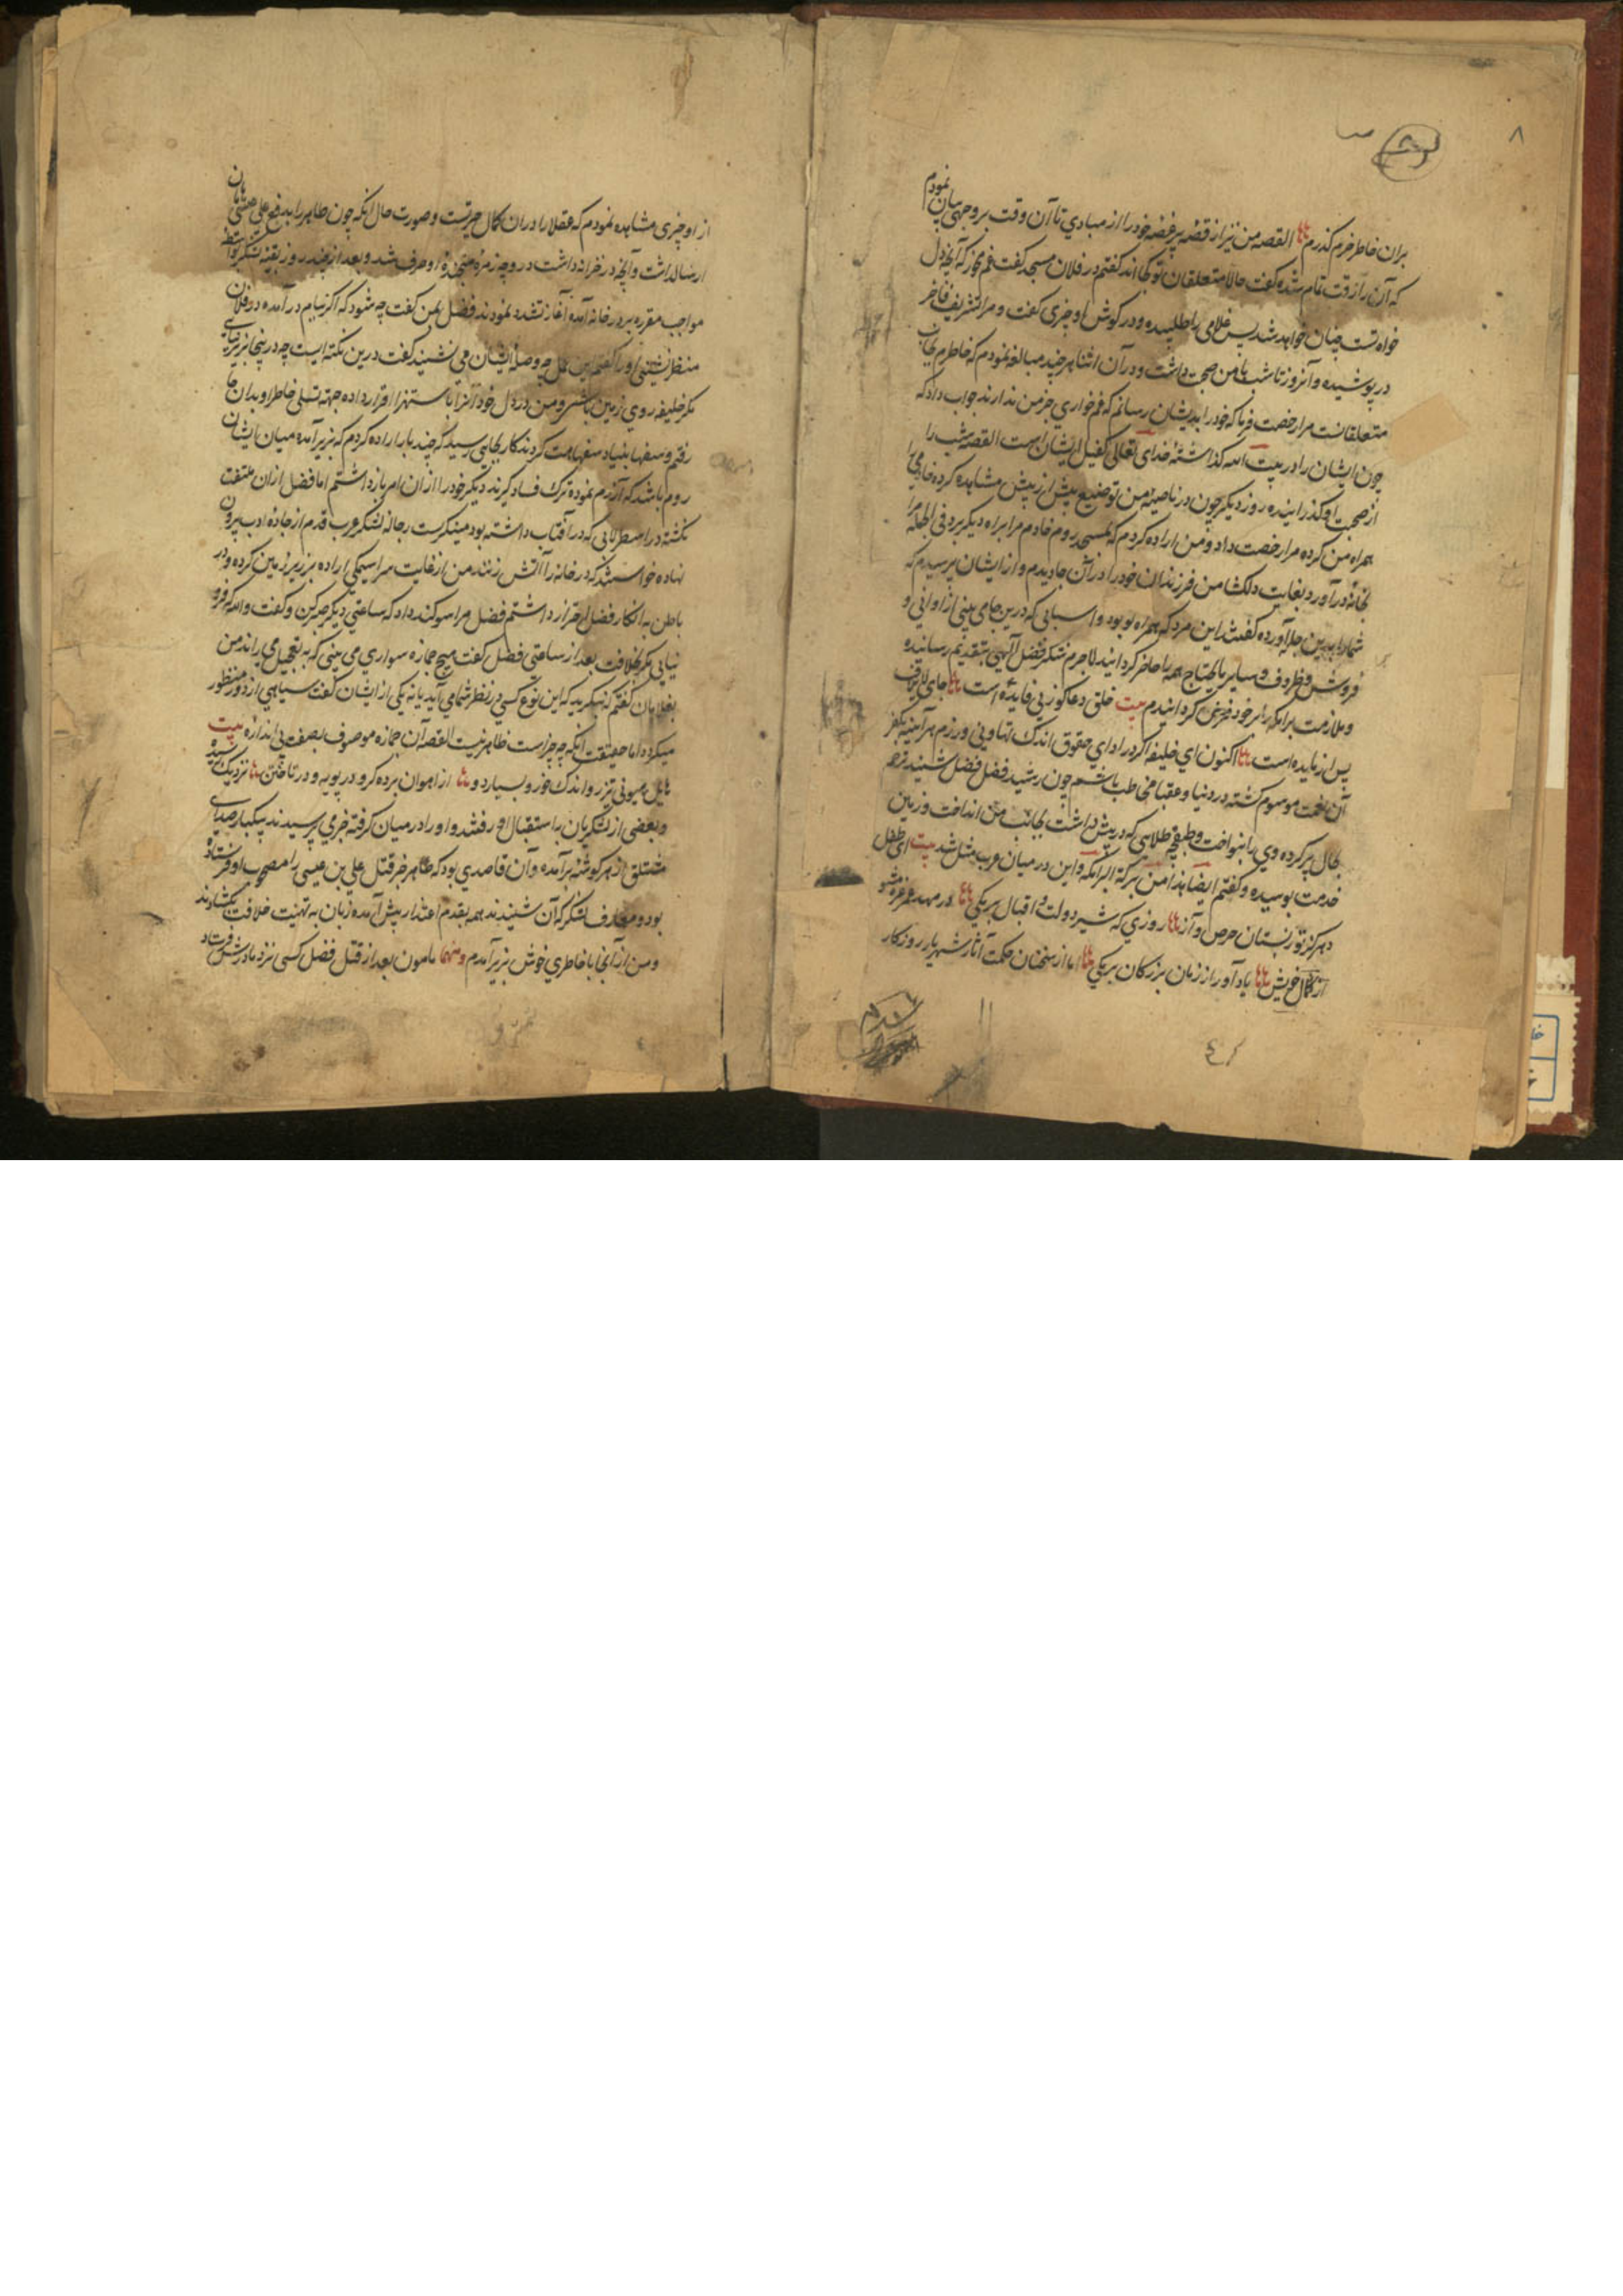 ۸
نمودم
بران خاطر خرم گذرم القصه من نیز از قصه پر غصه خود را از مبادی تا آن وقت بر وجهی بیان
که آن را رقت تمام شده گفت حالا متعلقان تو کجا اند گفتم در فلان مسجد گفت غم مخور که آنچه دل
خواه تست چنان خواهد شد پس غلامی را طلبیده و در گوش او چیزی گفت و مرا تشریف فاخر
در پوشیده و آنروز تا شب با من صحبت داشت و در آن اثنا هر چند مبالغه نمودم که خاطرم بجانب
متعلقانست مرا رخصت فرما که خود را بدیشان رسانم که غم خواری جز من ندارند جواب داد که
چون ایشان را در بیت الله گذاشتهٔ خدای تعالی کفیل ایشان است القصه شب را
در صحبت او گذرانیده روز دیگر چون در ناصیهٔ من توضیع بیش از پیش مشاهده کرده خادمی را
همراه من کرده مرا رخصت داد و من اراده کردم که بمسجد روم خادم مرا براه دیگر برد فی الجمله مرا
بخانهٔ در آورد بغایت دلکشا من فرزندان خود را در آن جا دیدم و از ایشان پرسیدم که
شما را بدین جا که آورده گفتند این مرد که همراه تو بود و اسبابی که درین جا می بینی از اوانی و
فروش و ظروف و سایر ما یحتاج همه را حاضر گردانید لاجرم شکر فضل آلهی بتقدیم رسانیده
و ملازمت برامکه را بر خود فرض گردانیدم بیت خلق دعا گوز پی فایده است جای
پس از مایده است اکنون ای خلیفه اگر در ادای حقوق اندک تهاونی ورزم هر آینه بکفر
آن نعمت موسوم گشته در دنیا و عقبا مخاطب باشم چون رشید فضل فضل شنید ترحم
بحال پر کرده وی را بنواخت و طبقچه طلایی که در پیش داشت بجانب من انداخت و زمین
خدمت بوسیده و گفتم ایضا هذا من برکة البرامکه و این در میان عرب مثل شد بیت ای طفل
دهر گر تو ز بستان حرص و آز روزی که شیر دولت و اقبال بر مکی در مهد عمر غره مشو
از کمال خویش یاد آور از زمان بزرگان بر مکی اما از سخنان حکمت آثار شهریار روزگار
از او چیزی مشاهده نمودم که عقلا را در ان کمال حیرتست و صورت حال آنکه چون طاهر را بدفع علی عیسی
ارسال داشت و آنچه در خزانه داشت در وجه زمرهٔ متجندهٔ او صرف شد و بعد از چند روز بقیهٔ لشکر بواسطهٔ
مواجب مقرره بر در خانه آمده آغاز تشدد نمودند فضل بمن گفت چه شود که اگر بیایم در آمده در فلان
منظر نشینی او را گفتم این محل چه وصلهٔ ایشان می نشیند گفت درین نکته ایست چه در پنجا زیر نیایی
مگر خلیفه روی زمین باشی و من در دل خود آنرا باستهزا قرار داده جهة تسلی خاطر او بدان جا
رفتم و سفها بنیاد سفاهت کردند کار بجایی رسید که چند بار اراده کردم که بزیر آمده میان ایشان
روم باشد که آزرم نموده ترک فساد گیرند دیگر خود را از ان امر باز داشتم اما فضل از ان ملتفت
نگشته در اسطرلابی که در آفتاب داشته بود مینگریست رجالهٔ لشکر عرب قدم از جادهٔ ادب بیرون
نهاده خواستند که در خانه را آتش زنند من از غایت سراسیمگی اراده بزیر زمین کرده و در
باطن به انکار فضل احتراز داشتم فضل مرا سوگند داد که ساعتی دیگر صبر کن و گفت والله که فرو
نیایی مگر بخلافت بعد از ساعتی فضل گفت هیچ جمازه سواری می بینی که به تعجیل می راند من
بغلامان گفتم که بنگرید که این نوع کسی در نظر شما می آید یا نه یکی از ایشان گفت سیاهیی از دور منظور
میگردد اما حقیقت آنکه چه چیز است ظاهر نیست القصه آن جمازه موصوف بصفت بی اندازه بیت
هایل هیونی تیز رو اندک خور و بسیار دو از اهوان برده گرو در پویه و در تاختن نزدیک رسیده
و بعضی از لشکریان باستقبال او رفتند و او را در میان گرفته خبری پرسیدند بیکبار صدای
متعلق از هر گوشه بر آمده و آن قاصدی بود که طاهر خبر قتل علی بن عیسی را مصحوب او فرستاده
بود و معارف لشکر که آن شنیدند همه بقدم اعتذار پیش آمده زبان به تهنیت خلافت بگشادند
و من از آنجا با خاطری خوش بزیر آمدم و منها مامون بعد از قتل فضل کسی نزد مادرش فرستاد